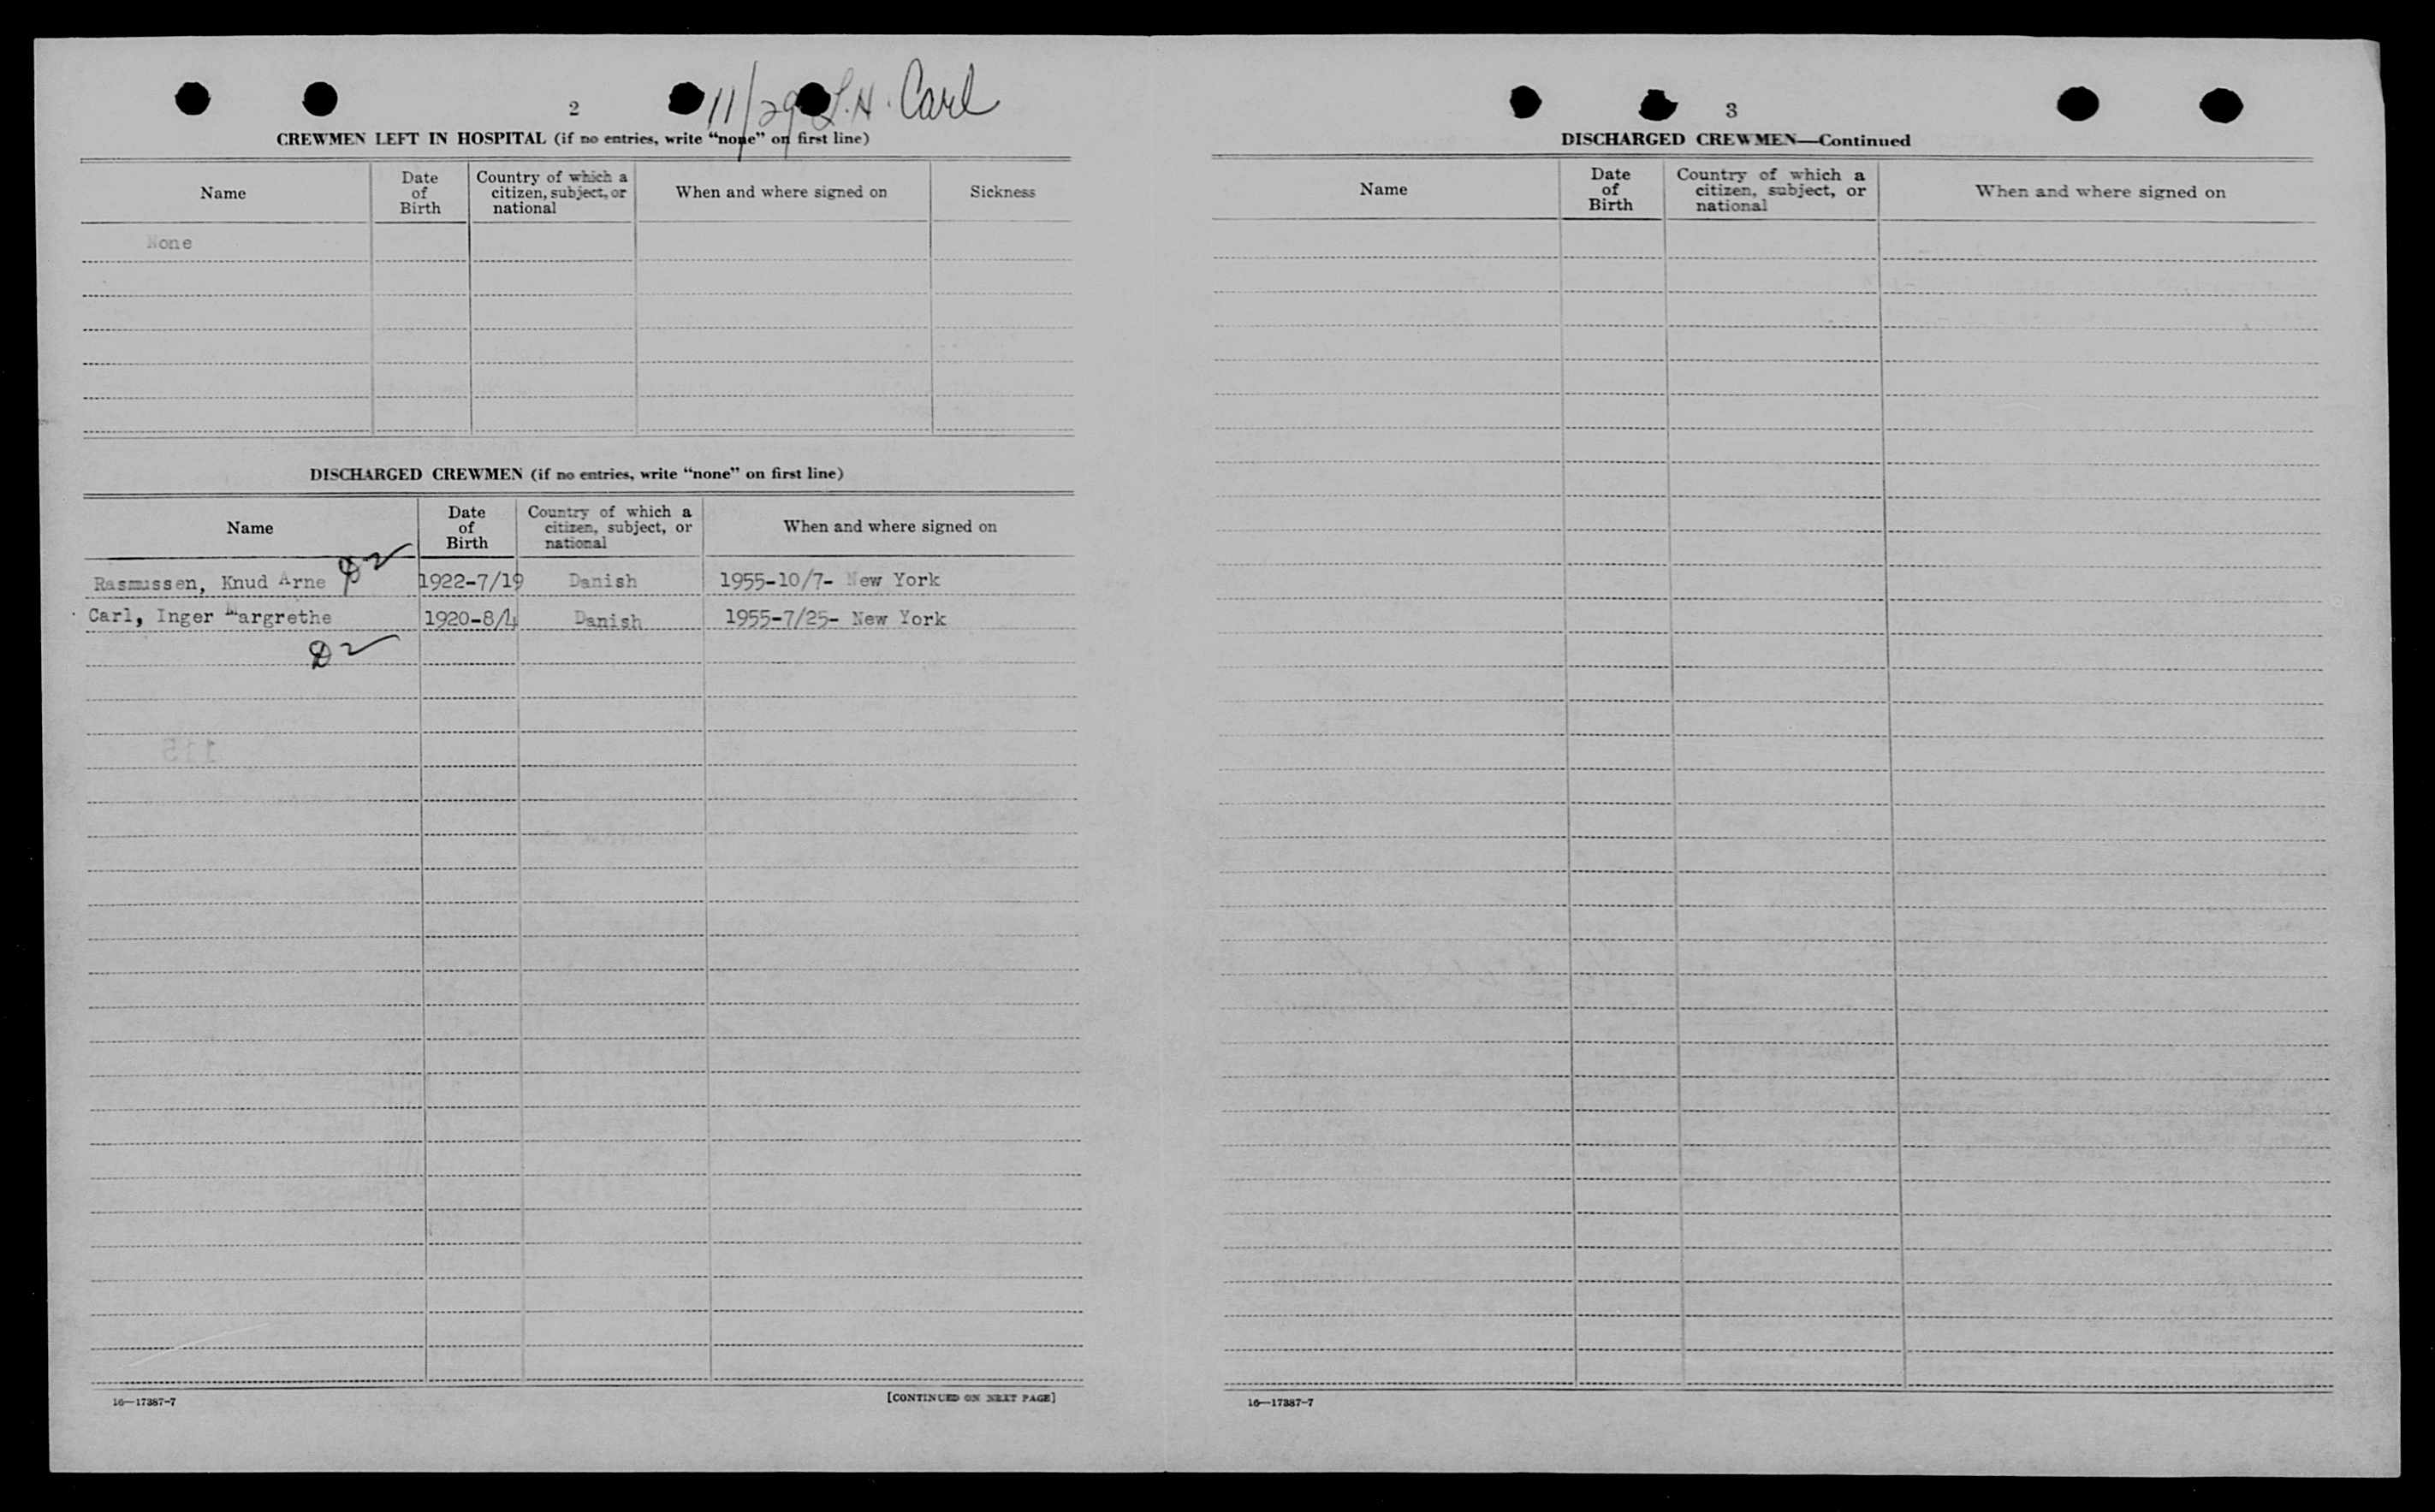 2
11/29 L.H. Carl
CREWMEN LEFT IN HOSPITAL (if no entries, write “none” on first line)
Name
Date of Birth
Country of which a citizen, subject, or national
When and where signed on
Sickness
None
DISCHARGED CREWMEN (if no entries, write “none” on first line)
Name
Date of Birth
Country of which a citizen, subject, or national
When and where signed on
Rasmussen, Knud Arne D2 1922-7/19 Danish 1955-10/7- New York
Carl, Inger Margrethe 1920-8/4 Danish 1955-7/25- New York
D2
115
16—17387-7
[CONTINUED ON NEXT PAGE]
3
DISCHARGED CREWMEN—Continued
Name
Date of Birth
Country of which a citizen, subject, or national
When and where signed on
16—17387-7